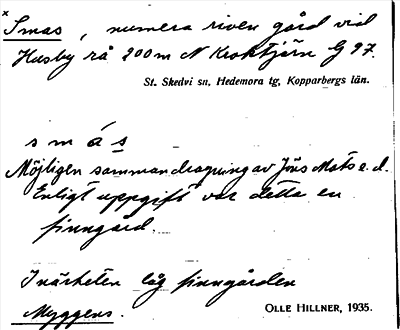 x Smas, numera riven gård vid
Husby rå 200 m N Kroktjärn G 97.
St. Skedvi sn, Hedemora tg, Kopparbergs län.
s m á s
Möjligen sammandragning av Jöns Mats e. d.
Enligt uppgift var detta en
finngård.
I närheten låg finngården
Myggens.
OLLE HILLNER, 1935.